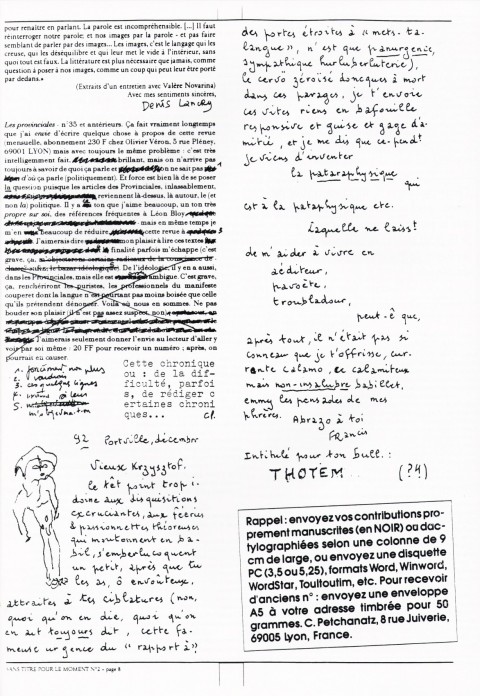 pour renaître en parlant. La parole est incompréhensible. [...] Il faut
réinterroger notre parole; et nos images par la parole - et pas faire
semblant de parler par des images... Les images, c'est le langage qui les
creuse, qui les déséquilibre et qui leur met le vide à l'intérieur, sans
quoi tout est faux. La littérature est plus nécessaire que jamais, comme
question à poser à nos images, comme un coup qui peut leur être porté
par dedans.»
(Extraits d'un entretien avec Valère Novarina)
Avec mes sentiments sincères,
Denis Landry
Les provinciales - n°35 et antérieurs. Ça fait vraiment longtemps
que j'ai envie d'écrire quelque chose à propos de cette revue
(mensuelle, abonnement 230 F chez Olivier Véron, 5 rue Pléney,
69001 LYON) mais avec toujours le même problème : c'est très
intelligemment fait, brillant, mais on n'arrive pas
toujours à savoir de quoi ça parle et on ne sait pas
d'où ça parle (politiquement). Et force est bien là de se poser
la question puisque les articles des Provinciales, inlassablement,
reviennent là-dessus, là autour, le (et
non la) politique. Il y a un ton que j'aime beaucoup, un ton très
propre sur soi, des références fréquentes à Léon Bloy
mais en même temps je
m'en beaucoup de réduire cette revue à
J'aimerais dire mon plaisir à lire ces textes
finalité parfois m'échappe (c'est
grave, ça,
De l'idéologie, il y en a aussi,
dans les Provinciales, mais elle est ambigue. C'est grave,
ça, renchériront les puristes, les professionnels du manifeste
couperet dont la langue n'est pourtant pas moins boisée que celle
qu'ils prétendent dénoncer. Voilà où nous en sommes. Ne pas
bouder son plaisir (il n'est pas assez suspect, non)
J'aimerais seulement donner l'envie au lecteur d'aller y
voir par soi même : 20 FF pour recevoir un numéro ; après, on
pourrait en causer.
1. forcément non plus
2. voudrais
3. ces quelques signes
5. m'objectera-t-on
Cette chronique
ou : de la dif-
ficulté, parfoi
s, de rédiger c
ertaines chroni
ques... CP.
92 Portville, décembre
Vieux Krzysztof.
le têt point trop i-
doine aux disquisitions
excruciantes, aux féeries
& passionnettes théoreuses
qui moutonnent en ba-
bil, s'emberlucoquent
un petit, après que tu
les as, ô envoûteux,
attraites à tes ciblatures (non,
quoi qu'on en die, quoi qu'on
en ait toujours dit, cette fa-
meuse urgence du "rapport à"
des portes étroites à "mets-ta-
langue", n'est que panurgence,
sympathique hurluberluterie),
le cervô zéroïsé doncques à mort
dans ces parages, je t'envoie
ces vites riens en bafouille
responsive et guise et gage d'a-
mitié, et je me dis que ce-pend!
je viens d'enventer
la pataraphysique
qui
est à la pataphysique etc.
Laquelle ne laiss!
de m'aider à vivre en
aéditeur,
paroète,
troubladour,
peut-ê que,
après tout, il n'était pas si
conneau que je t'offrisse, cur-
rente calamo, ce calamiteux
mais non-insalubre babillet,
emmy les pensades de mes
phrères. Abrazo à toi
Francis
Intitulé pour ton bull. :
THOTEM... (?4)
Rappel : envoyez vos contributions pro-
prement manuscrites (en NOIR) ou dac-
tylographiées selon une colonne de 9
cm de large, ou envoyez une disquette
PC (3,5 ou 5,25), formats Word, Winword,
WordStar, Toutfoutim, etc. Pour recevoir
d'anciens n° : envoyez une enveloppe
A5 à votre adresse timbrée pour 50
grammes. C. Petchanatz, 8 rue Juiverie,
69005 Lyon, France.
SANS TITRE POUR LE MOMENT N°2 - page 8